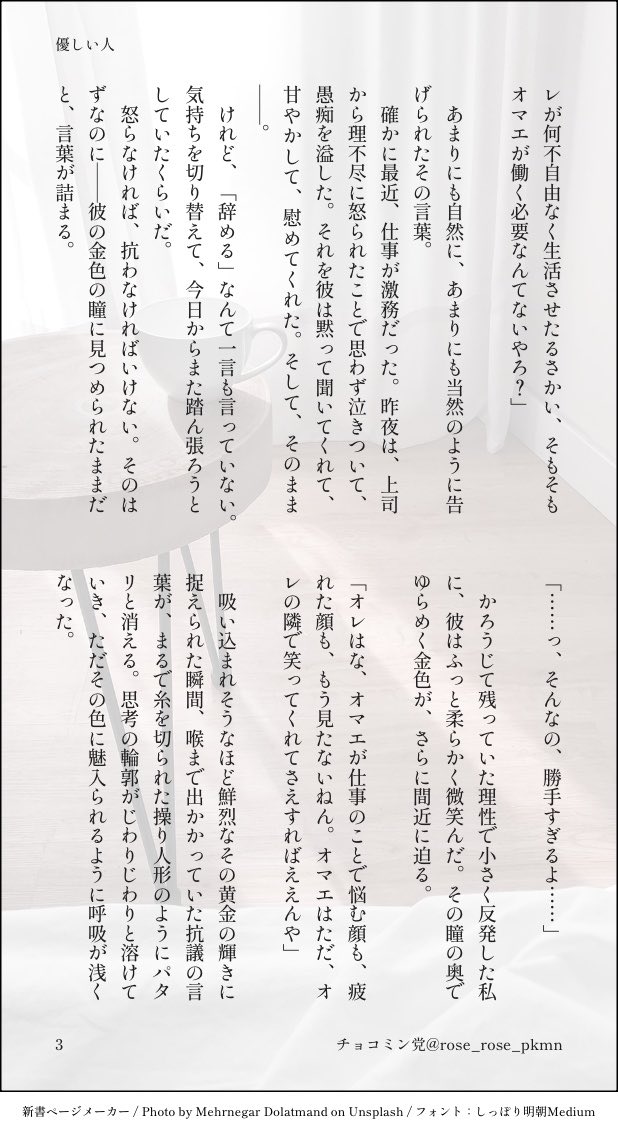 優しい人
レが何不自由なく生活させたるさかい、そもそも
オマエが働く必要なんてないやろ？」
　あまりにも自然に、あまりにも当然のように告
げられたその言葉。
　確かに最近、仕事が激務だった。昨夜は、上司
から理不尽に怒られたことで思わず泣きついて、
愚痴を溢した。それを彼は黙って聞いてくれて、
甘やかして、慰めてくれた。そして、そのまま
――。
　けれど、「辞める」なんて一言も言っていない。
気持ちを切り替えて、今日からまた踏ん張ろうと
していたくらいだ。
　怒らなければ、抗わなければいけない。そのは
ずなのに――彼の金色の瞳に見つめられたままだ
と、言葉が詰まる。
「……っ、そんなの、勝手すぎるよ……」
　かろうじて残っていた理性で小さく反発した私
に、彼はふっと柔らかく微笑んだ。その瞳の奥で
ゆらめく金色が、さらに間近に迫る。
「オレはな、オマエが仕事のことで悩む顔も、疲
れた顔も、もう見たないねん。オマエはただ、オ
レの隣で笑ってくれてさえすればええんや」
　吸い込まれそうなほど鮮烈なその黄金の輝きに
捉えられた瞬間、喉まで出かかっていた抗議の言
葉が、まるで糸を切られた操り人形のようにパタ
リと消える。思考の輪郭がじわりじわりと溶けて
いき、ただその色に魅入られるように呼吸が浅く
なった。
3
チョコミン党@rose_rose_pkmn
新書ページメーカー / Photo by Mehrnegar Dolatmand on Unsplash / フォント：しっぽり明朝Medium